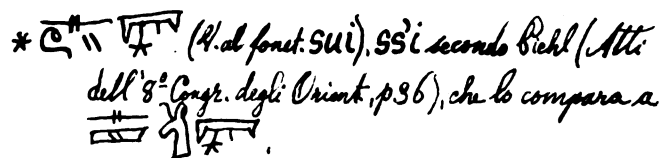 * (V. al fonet. sui), ss'i secondo Piehl (Atti
dell'8º Congr. degli Orient., p 36), che lo compara a